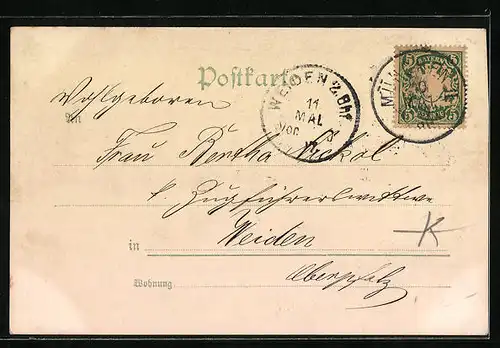 Postkarte
BAYERN
5 5
WEIDEN 2. Bhf
11
MAI
Vor
Wohlgeboren
An
Frau Bertha Nickol
k. Zugführerswittwe
in Weiden
Oberpfalz
Wohnung